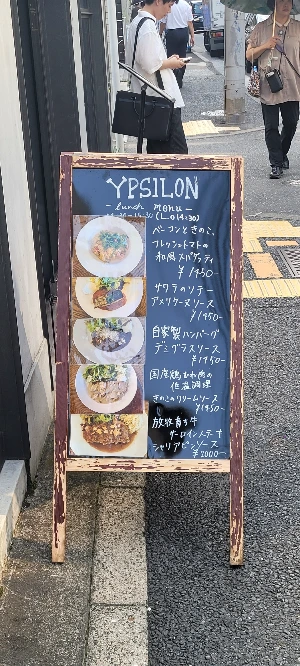 YPSILON
- lunch menu -
11:30-15:30 (L.O 14:30)
ベーコンときのこ、
フレッシュトマトの
和風スパゲッティ
¥1450-
サワラのソテー
アメリケーヌソース
¥1950-
自家製ハンバーグ
デミグラスソース
¥1950-
国産鶏むね肉の
低温調理
きのこクリームソース
¥1950-
放牧育ち牛
サーロインステーキ
シャリアピンソース
¥2000-